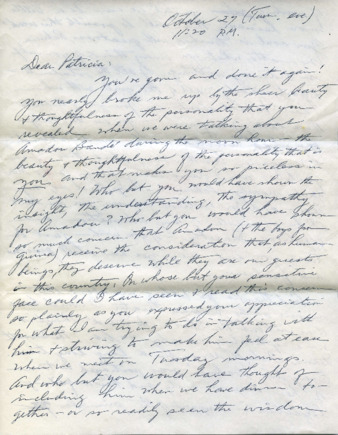 October 27 (Tues. eve)
11:20 P.M.
Dear Patricia:
You've gone and done it again!
You nearly broke me up by the sheer beauty
& thoughtfulness of the personality that you
revealed when we were talking about
Amadou during the noon hour — the
beauty & thoughtfulness of the personality that is
you and that makes you so priceless in
my eyes! Who but you would have shown the
insight, the understanding, the sympathy
for Amadou? Who but you would have shown
so much concern that Amadou (& the boys from
Guinea) receive the consideration that as human
beings they deserve while they are our guests
in this country. On whose but your sensitive
face could I have seen & read this concern
so plainly, as you expressed your appreciation
for what I am trying to do in talking with
him & striving to make him feel at ease
when we meet on Tuesday mornings.
And who but you would have thought of
including him when we have dinner to-
gether — or so readily seen the wisdom